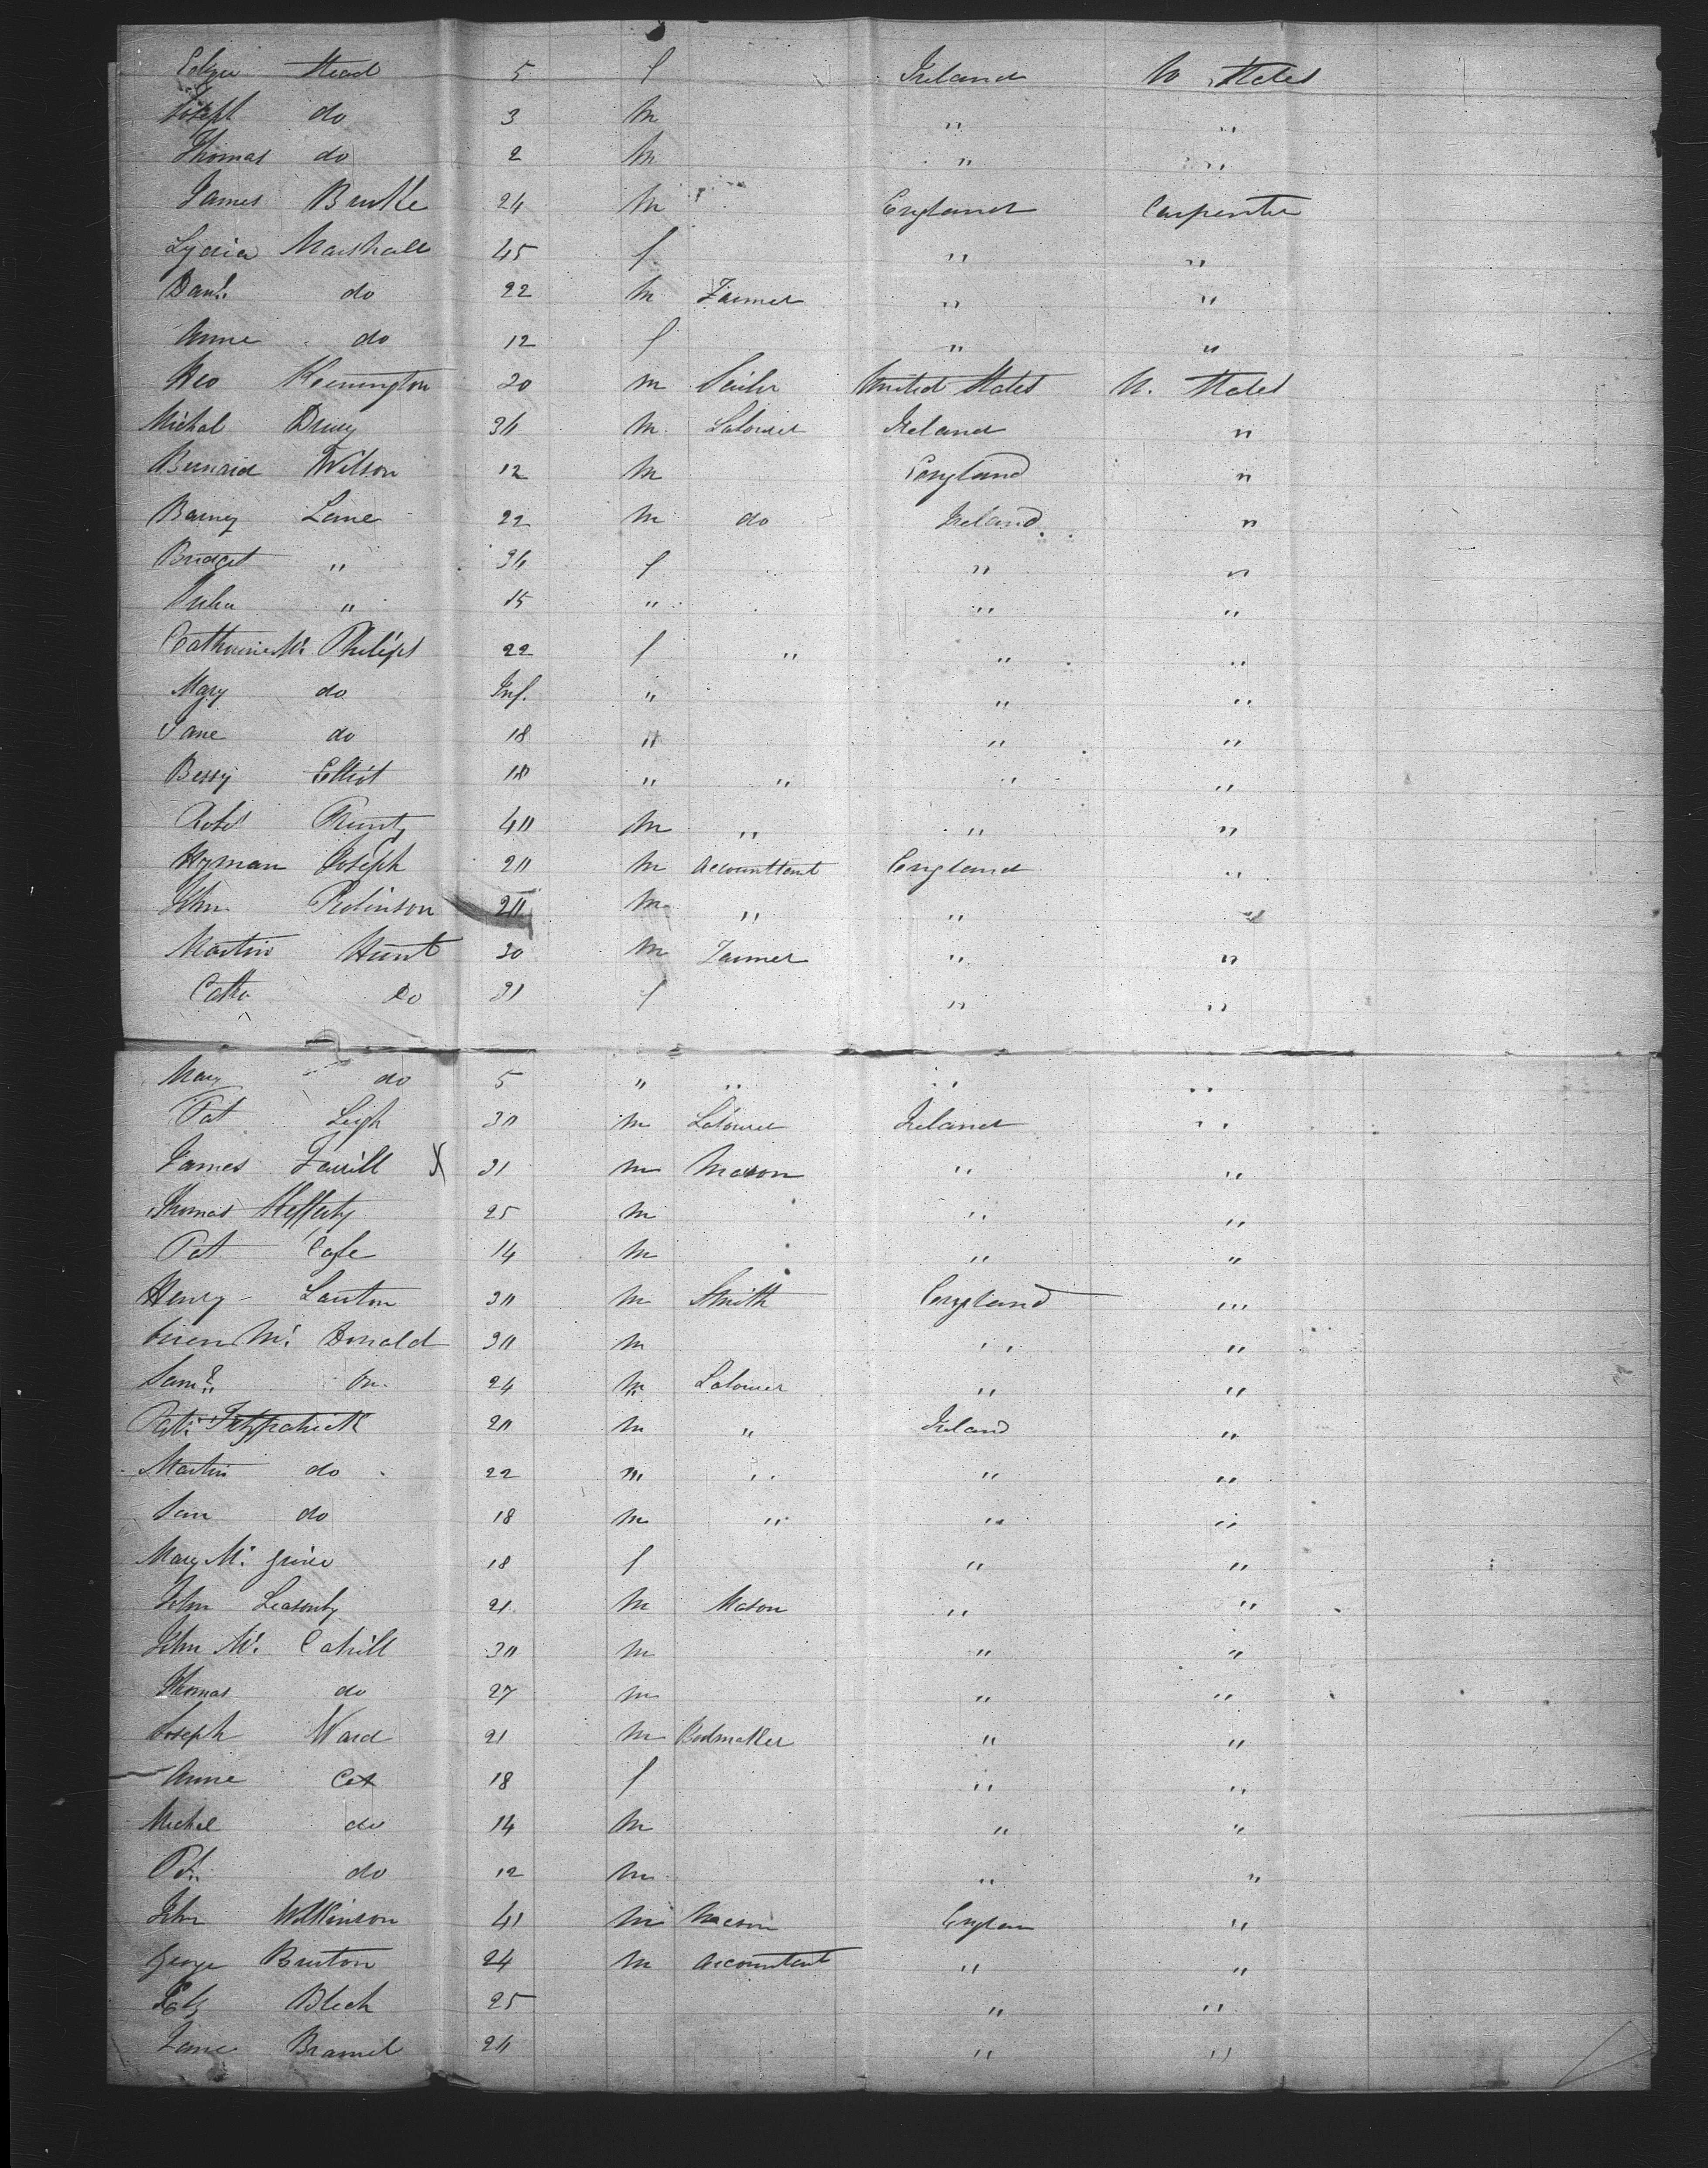 Head 5 f Ireland U States
Joseph do 3 m " "
Thomas do 2 m " "
James Burke 24 m England Carpenter
Lydia Marshall 45 f " "
Danl. do 22 m Farmer " "
Anne do 12 f " "
Geo Kennington 20 m Sailor United States U. States
Michal Drury 30 m Labourer Ireland "
Bernard Wilson 12 m England "
Barney Lane 22 m do Ireland "
Bridget " 30 f " "
" 15 " " "
Catharine Mc Philips 22 f " " "
Mary do Inf. " " "
Jane do 18 " " "
Bessy Elliot 18 " " " "
Robt 40 m " " "
Hyman Joseph 20 m Accounttant England "
John Robinson 20 m " " "
Martin Hunt 30 m Farmer " "
Cath Do 31 f " "
Mary do 5 " " " "
Pat Leigh 30 m Labourer Ireland "
James Farrill X 31 m Mason " "
Thomas Hefferty 25 m " "
Pat 14 m " "
Henry Lauton 30 m Smith England "
Mc Donald 30 m " "
Saml. 24 m Labourer " "
Fitzpatrick 20 m " Ireland "
Martin do 22 m " " "
do 18 m " " "
Mary Mc 18 f " "
John Leasonby 21 m Mason " "
John Mc Cahill 30 m " "
Thomas do 27 m " "
Joseph Ward 21 m Bedmaker " "
Anne 18 f " "
Michel do 14 m " "
Pat. do 12 m " "
John Wilkinson 41 m Mason Englan "
George Bruton 24 m Accountant " "
Black 25 " "
Jane Bramel 20 " "